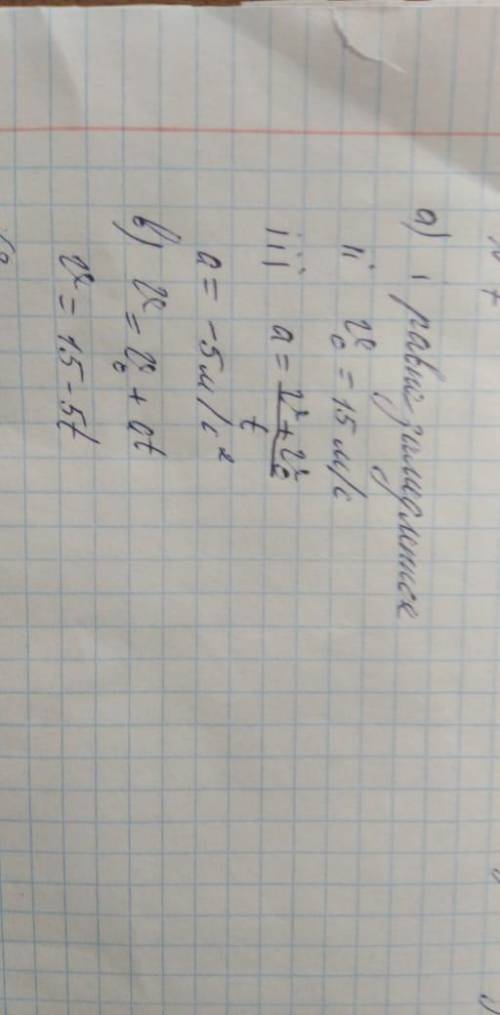 а) i равно-замедляется
ii v₀ = 15 м/с
iii a = v+v₀ / t
a = -5 м/с²
в) v = v₀ + at
v = 15 - 5t